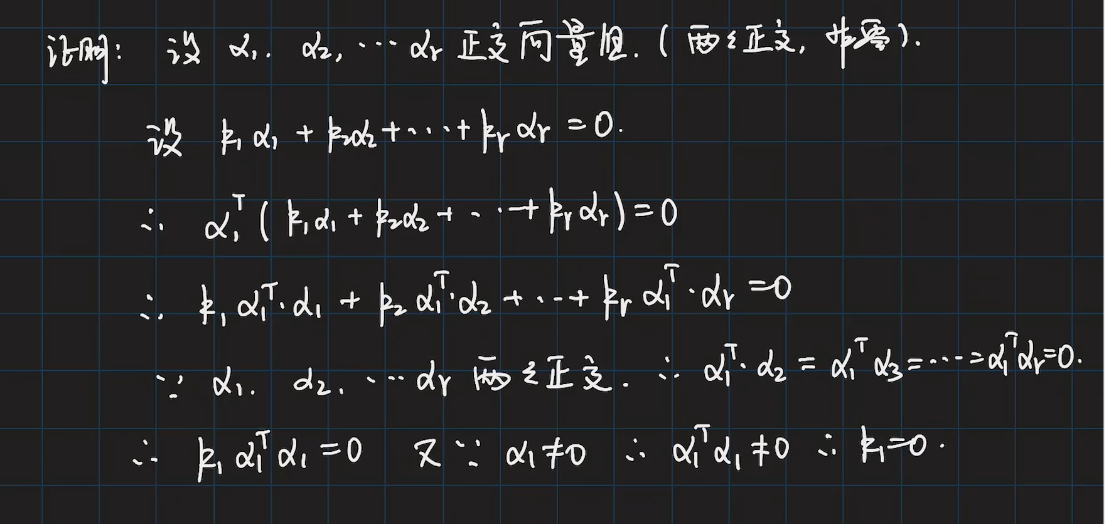 证明: 设 α₁, α₂, ⋯ αᵣ 正交向量组. (两々正交, 非零).
设 k₁α₁ + k₂α₂ + ⋯ + kᵣαᵣ = 0.
∴ α₁ᵀ(k₁α₁ + k₂α₂ + ⋯ + kᵣαᵣ) = 0
∴ k₁α₁ᵀ·α₁ + k₂α₁ᵀ·α₂ + ⋯ + kᵣα₁ᵀ·αᵣ = 0
∵ α₁, α₂, ⋯ αᵣ 两々正交. ∴ α₁ᵀ·α₂ = α₁ᵀα₃ = ⋯ = α₁ᵀαᵣ = 0.
∴ k₁α₁ᵀα₁ = 0 又∵ α₁ ≠ 0 ∴ α₁ᵀα₁ ≠ 0 ∴ k₁ = 0.